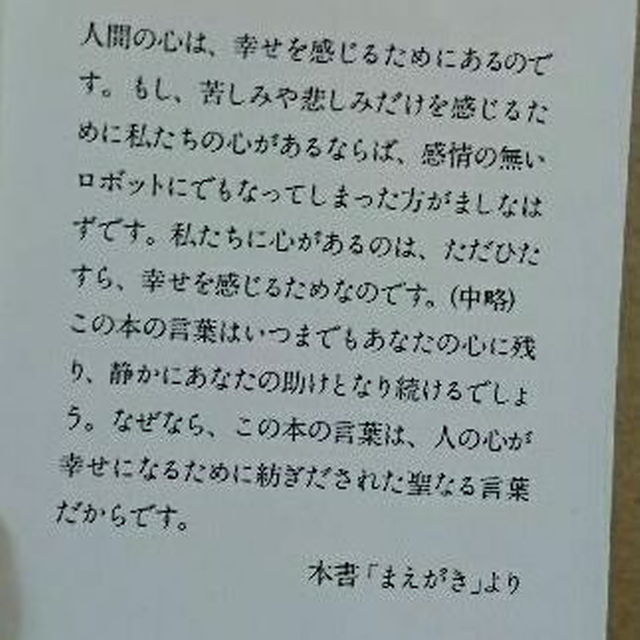 人間の心は、幸せを感じるためにあるので
す。もし、苦しみや悲しみだけを感じるた
めに私たちの心があるならば、感情の無い
ロボットにでもなってしまった方がましなは
ずです。私たちに心があるのは、ただひた
すら、幸せを感じるためなのです。(中略)
この本の言葉はいつまでもあなたの心に残
り、静かにあなたの助けとなり続けるでしょ
う。なぜなら、この本の言葉は、人の心が
幸せになるために紡ぎだされた聖なる言葉
だからです。
本書「まえがき」より